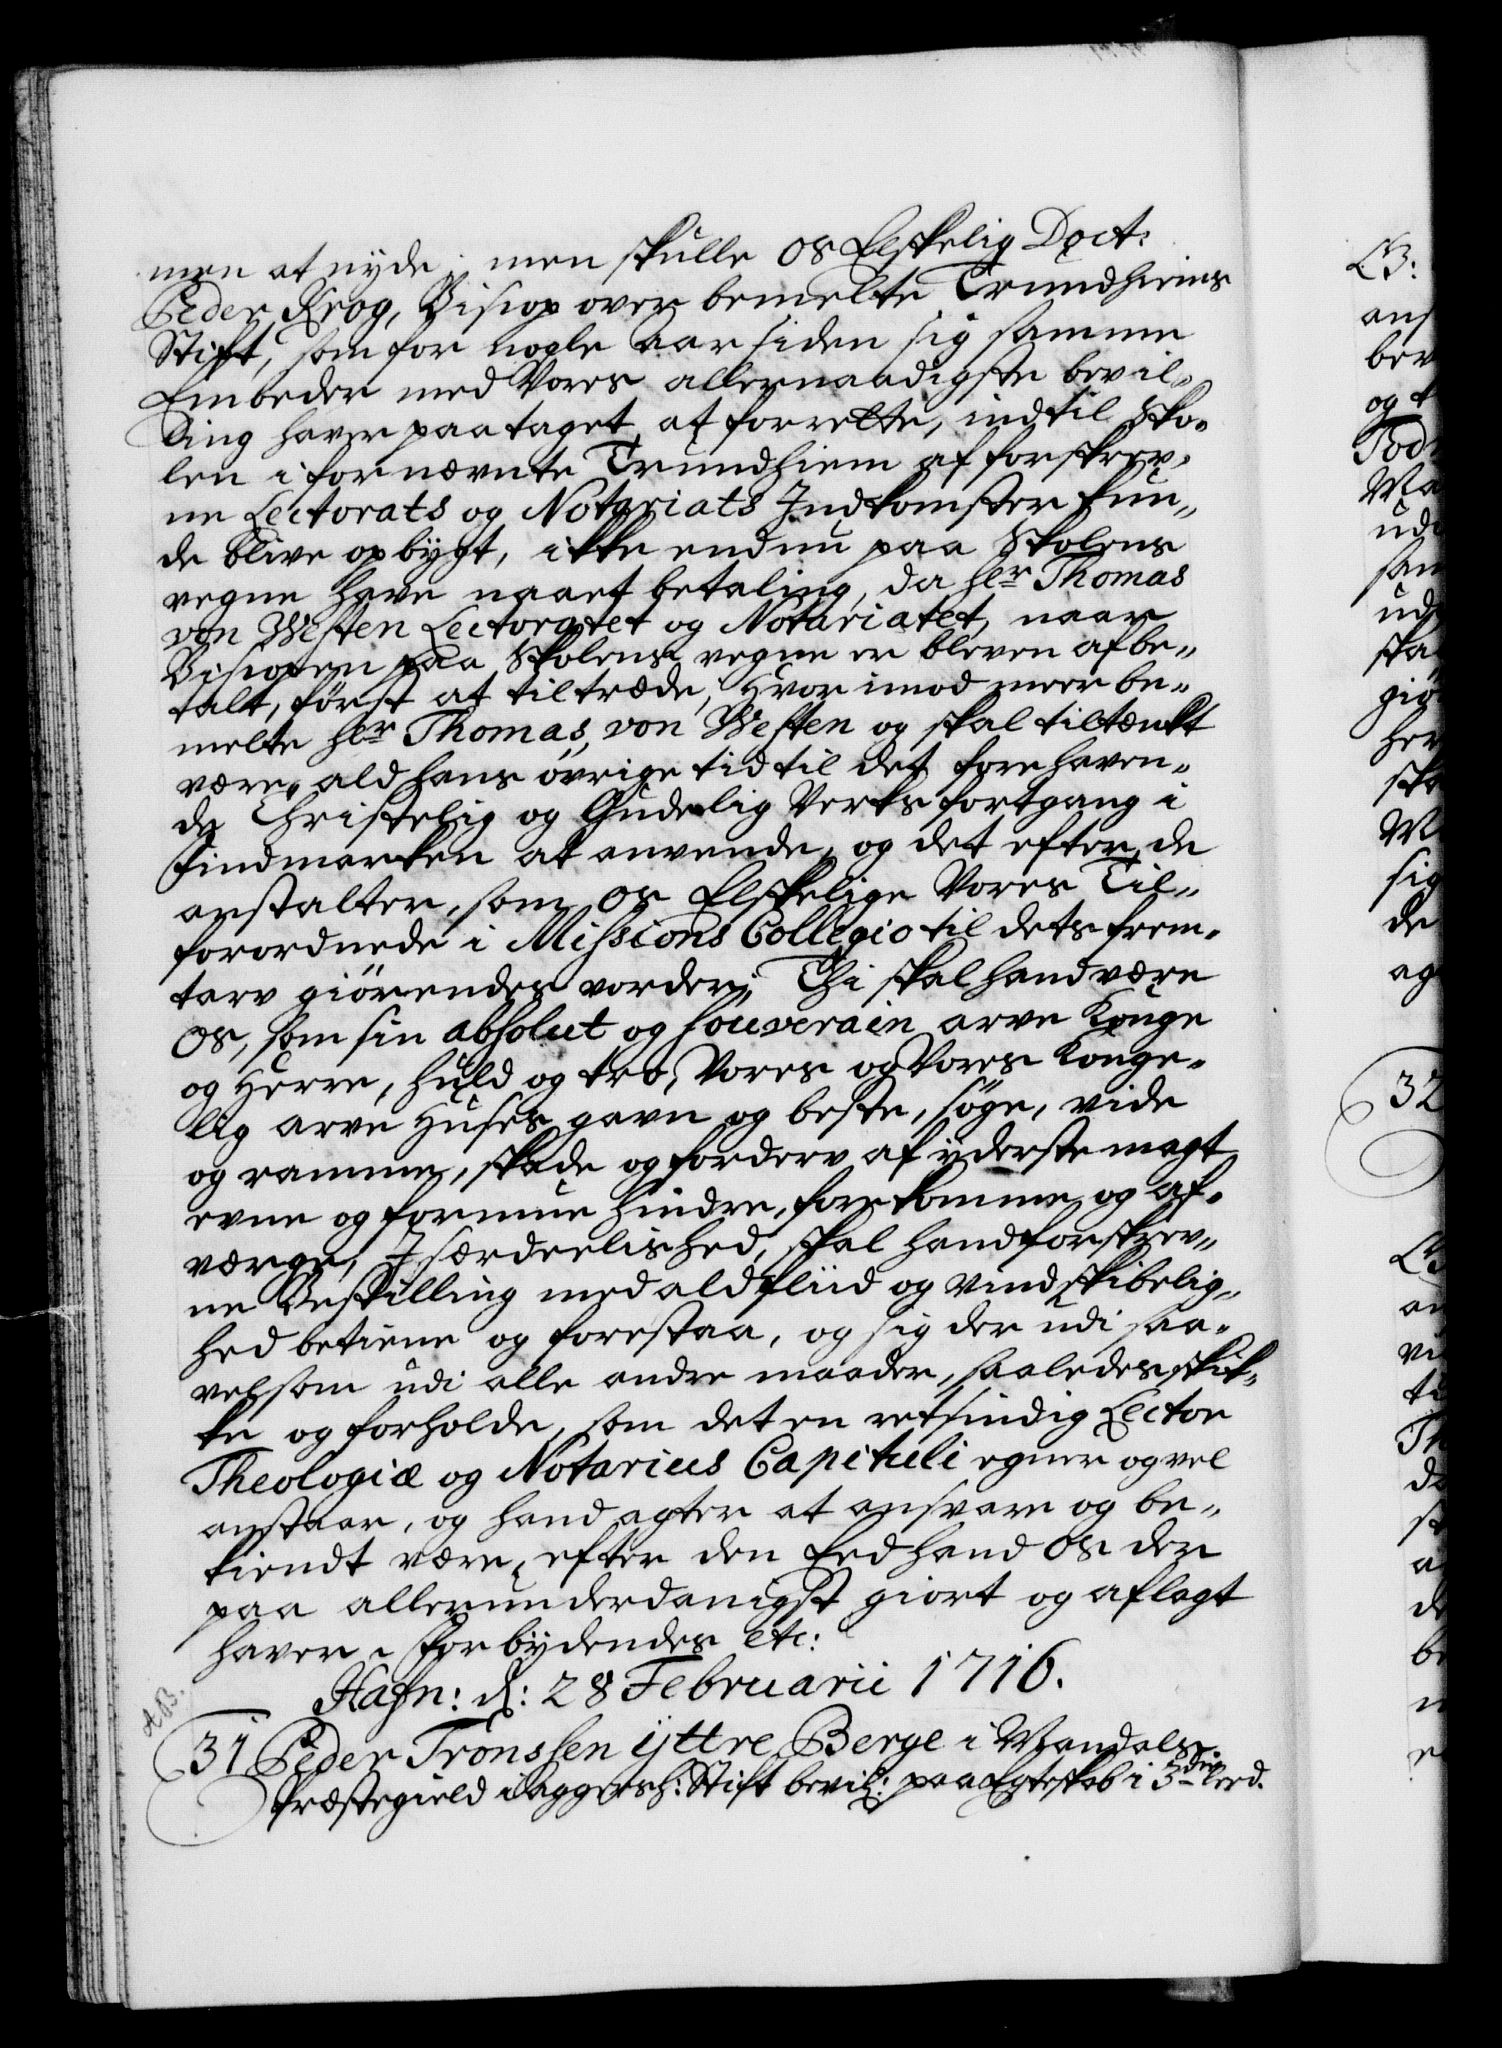 men at nyde; men skulle Os Elskelig Doct:
Peder Krog, Bisiop over bemelte Trundhiems
Stift, som for nogle aar siden sig samme
Embeder med Vores allernaadigste bevil-
ling haver paataget at forrette, indtil Sko-
len i fornævnte Trundhiem af forskrev-
ne Lectorats og Notariats Indkomster kun-
de blive opbygt, ikke endnu paa Skolens
vegne have naaet betaling, da hr Thomas
von Westen Lectoratet og Notariatet, naar
Bisiopen paa Skolens vegne er bleven afbe-
talt, först at tiltræde, Hvorimod meerbe-
melte hr Thomas von Westen og skal tiltænkt
være, ald hans övrige tid til det forehaven-
de Christelig og Gudelig Verks fortgang i
Findmarken at anvende, og det efter de
anstalter, som Os Elskelige Vores Til-
forordnede i Missions Collegio til dets frem-
tarv giörendes vorder; Thi skal hand være
Os, som sin absolut og souverain arve Konge
og Herre, huld og tro, Vores og Vores Konge-
lig arve Huses gavn og beste, söge, vide
og ramme, skade og forderv af yderste magt
evne og formue hindre, forekomme og af-
værge, Jsærdeelished, skal hand forskrev-
ne Bestilling med ald fliid og vindskibelig-
hed betiene og forestaa, og sig der udi saa-
velsom udi alle andre maader, saaledes skik-
ke og forholde, som det en retsindig Lector
Theologiæ og Notarius Capituli egner og vel
anstaar, og hand agter at ansvare og be-
kiendt være, efter den Eed hand Os der
paa allerunderdanigst giort og aflagt
haver. Forbydendes etc:
Hafn: d: 28 Februarii 1716.
31 Peder Tronssen yttre Berge i Mandals
Præstegield i Aggersh: Stift bevil: paa Egteskab i 3die leed.